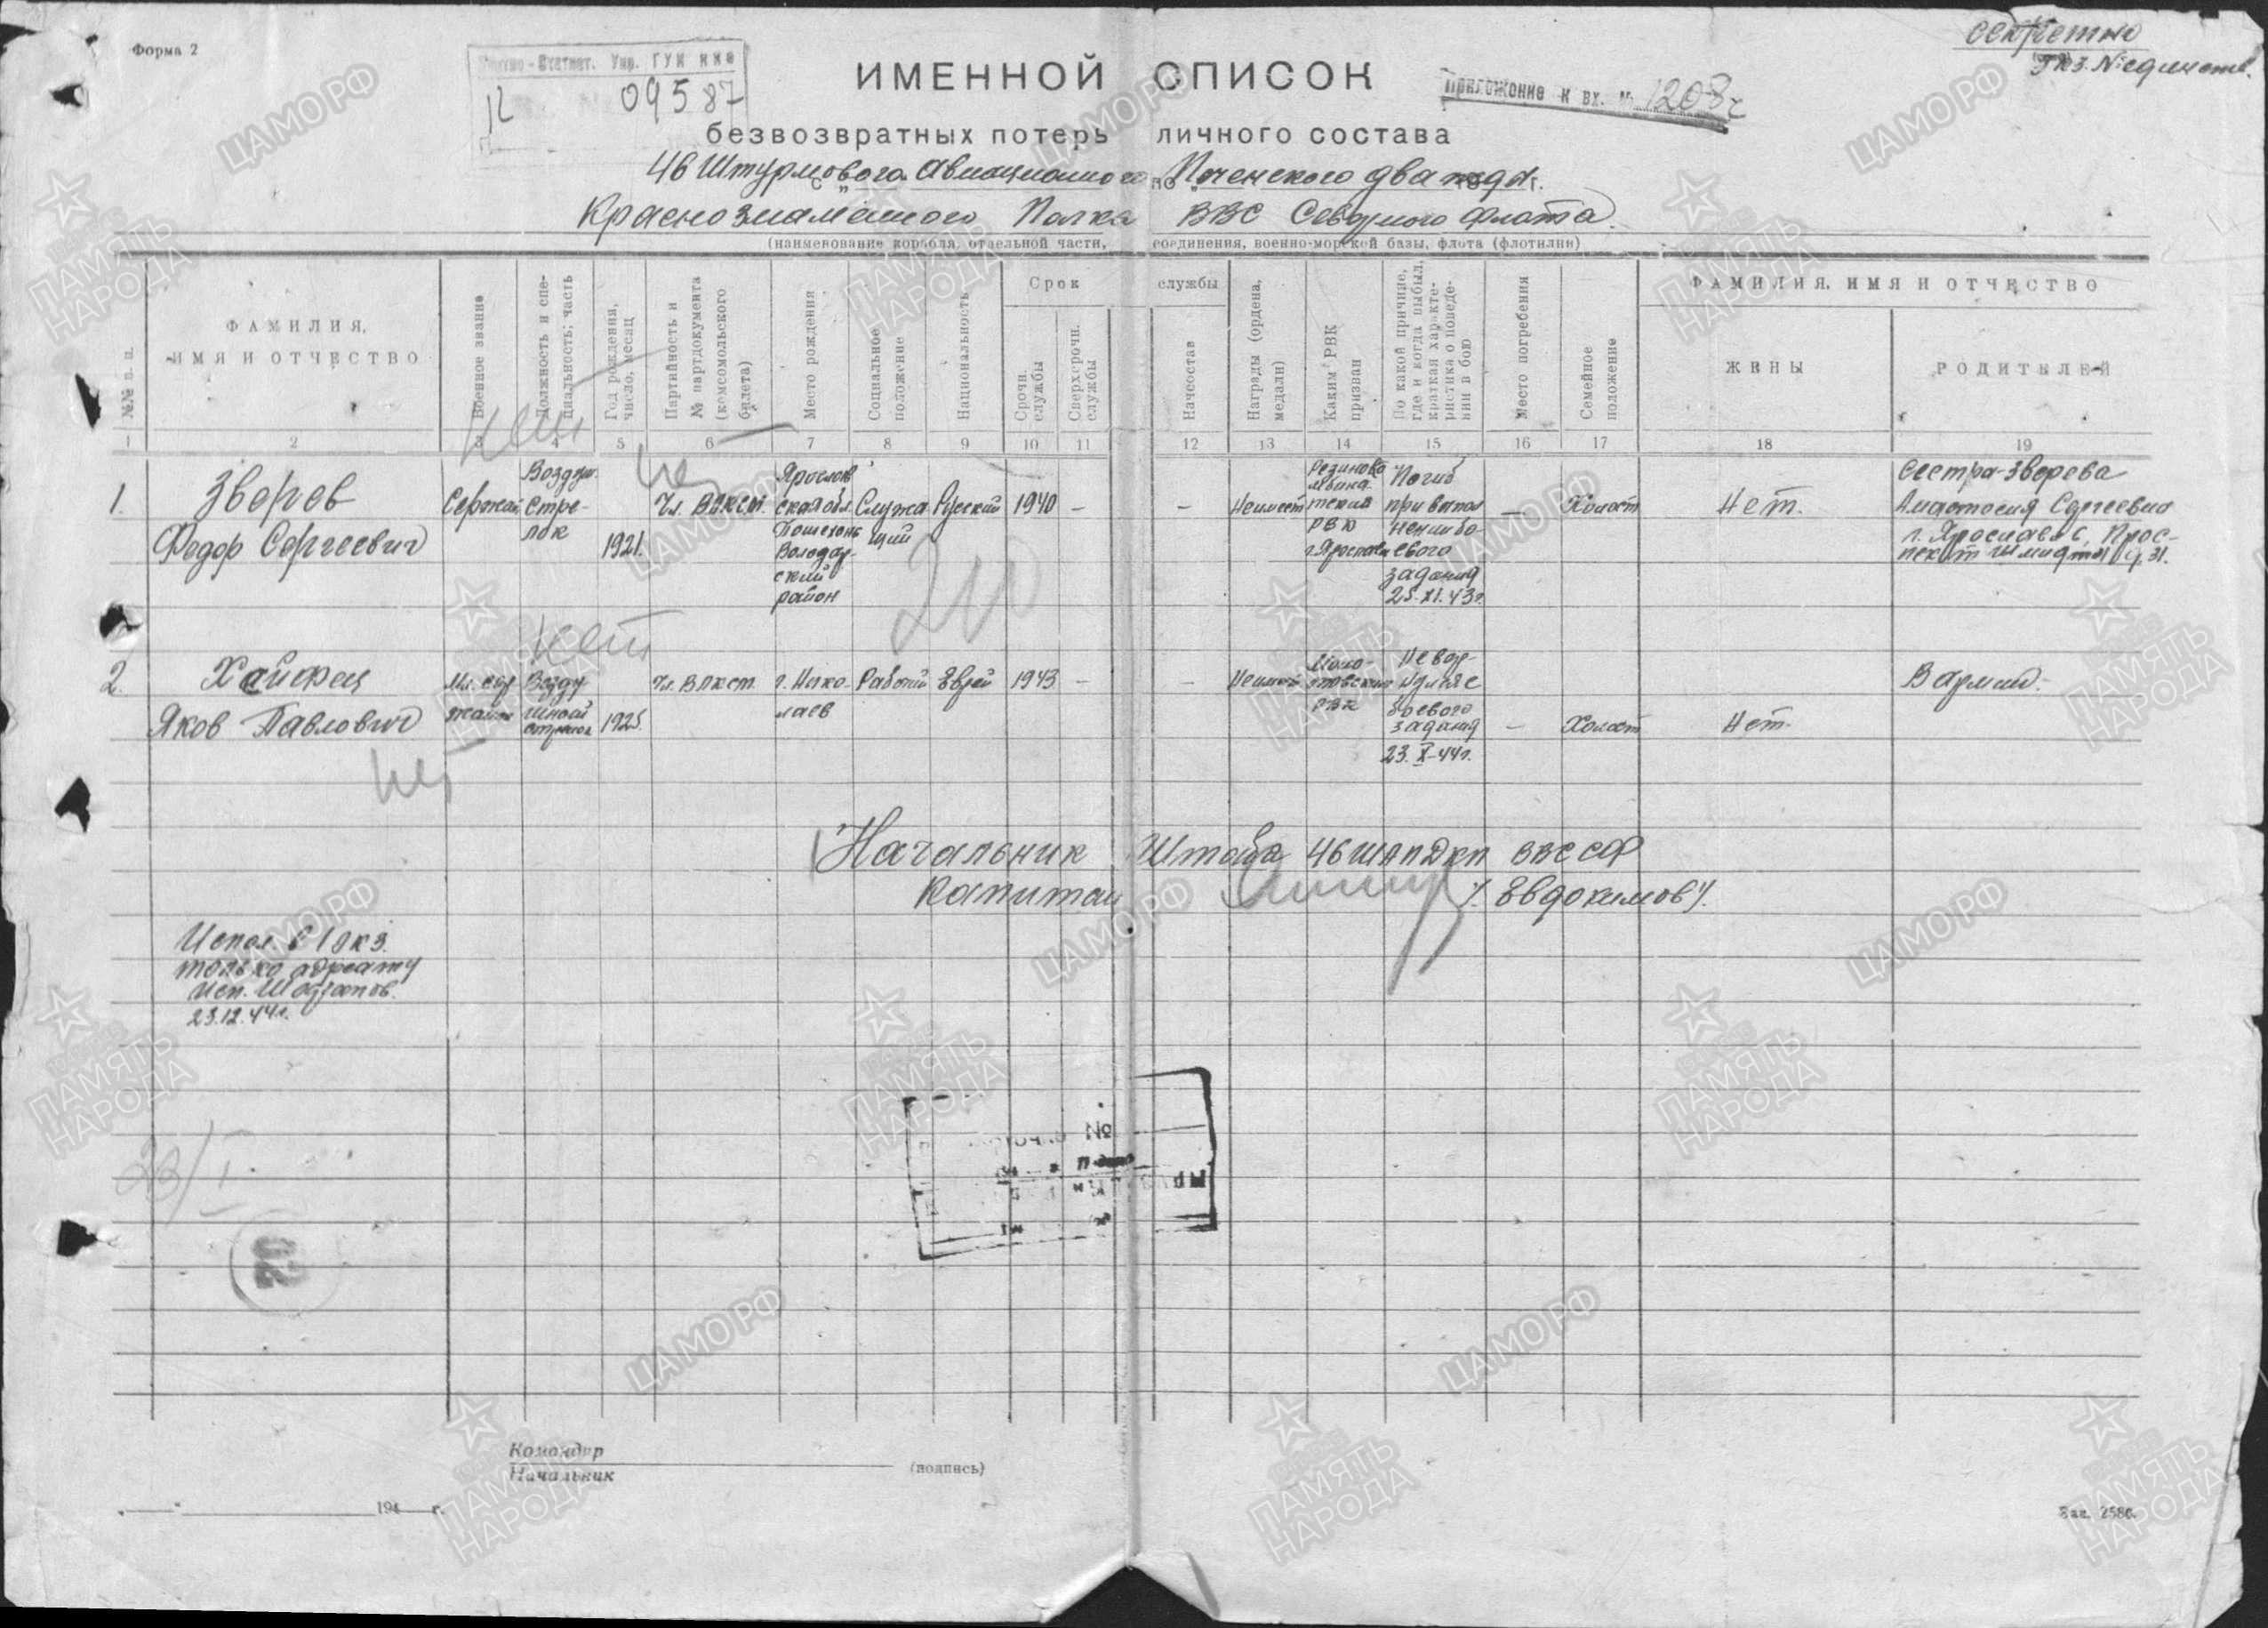 Форма 2
Секретно
Экз. № единств.
09587
ИМЕННОЙ СПИСОК
Приложение к вх. № 1208с
безвозвратных потерь личного состава
46 Штурмового Авиационного Печенского дважды
Краснознаменного Полка ВВС Северного Флота.
(наименование корабля, отдельной части, соединения, военно-морской базы, флота (флотилии)
№№ п. п.
ФАМИЛИЯ,
ИМЯ И ОТЧЕСТВО
Военное звание
Должность и спе-
циальность; часть
Год рождения,
число, месяц
Партийность и
№ партдокумента
(комсомольского
билета)
Место рождения
Социальное
положение
Национальность
Срок службы
Срочн.
службы
Сверхсрочн.
службы
Начсостав
Награды (ордена,
медали)
Каким РВК
призван
По какой причине,
где и когда выбыл,
краткая характе-
ристика о поведе-
нии в бою
Место погребения
Семейное
положение
ФАМИЛИЯ, ИМЯ И ОТЧЕСТВО
ЖЕНЫ
РОДИТЕЛЕЙ
1 2 3 4 5 6 7 8 9 10 11 12 13 14 15 16 17 18 19
1.
Зверев
Федор Сергеевич
Сержант
Воздуш.
Стре-
лок
1921.
Чл. ВЛКСМ.
Ярослав
ская обл.
Пошехонь
Володар-
ский
район
Служа
щий
Русский
1940
—
—
Неимеет
РВК
г. Ярославль
Погиб
при выпол
нении бо-
евого
задания
25.XI.43г.
—
Холост
Нет.
Сестра-Зверева
Анастасия Сергеевна
г. Ярославль, Прос-
пект Шмидта д. 31.
2.
Хайфец
Яков Павлович
Мл. сер
жант
Возду
шный
стрелок
1925.
Чл. ВЛКСМ
г. Нико
лаев
Рабочий
Еврей
1943
—
—
Неимеет
Моло-
товским
РВК
Невер-
нулся с
боевого
задания
23.X-44г.
—
Холост
Нет.
В армии.
Начальник Штаба 46 ШАПДКП ВВС СФ
Капитан /Евдокимов/.
Испол. в 1 экз.
только адресату
исп.
23.12.44г.
20
Командир
Начальник
(подпись)
194 г.
Зак. 2586.
ЦАМО.РФ
ПАМЯТЬ
НАРОДА